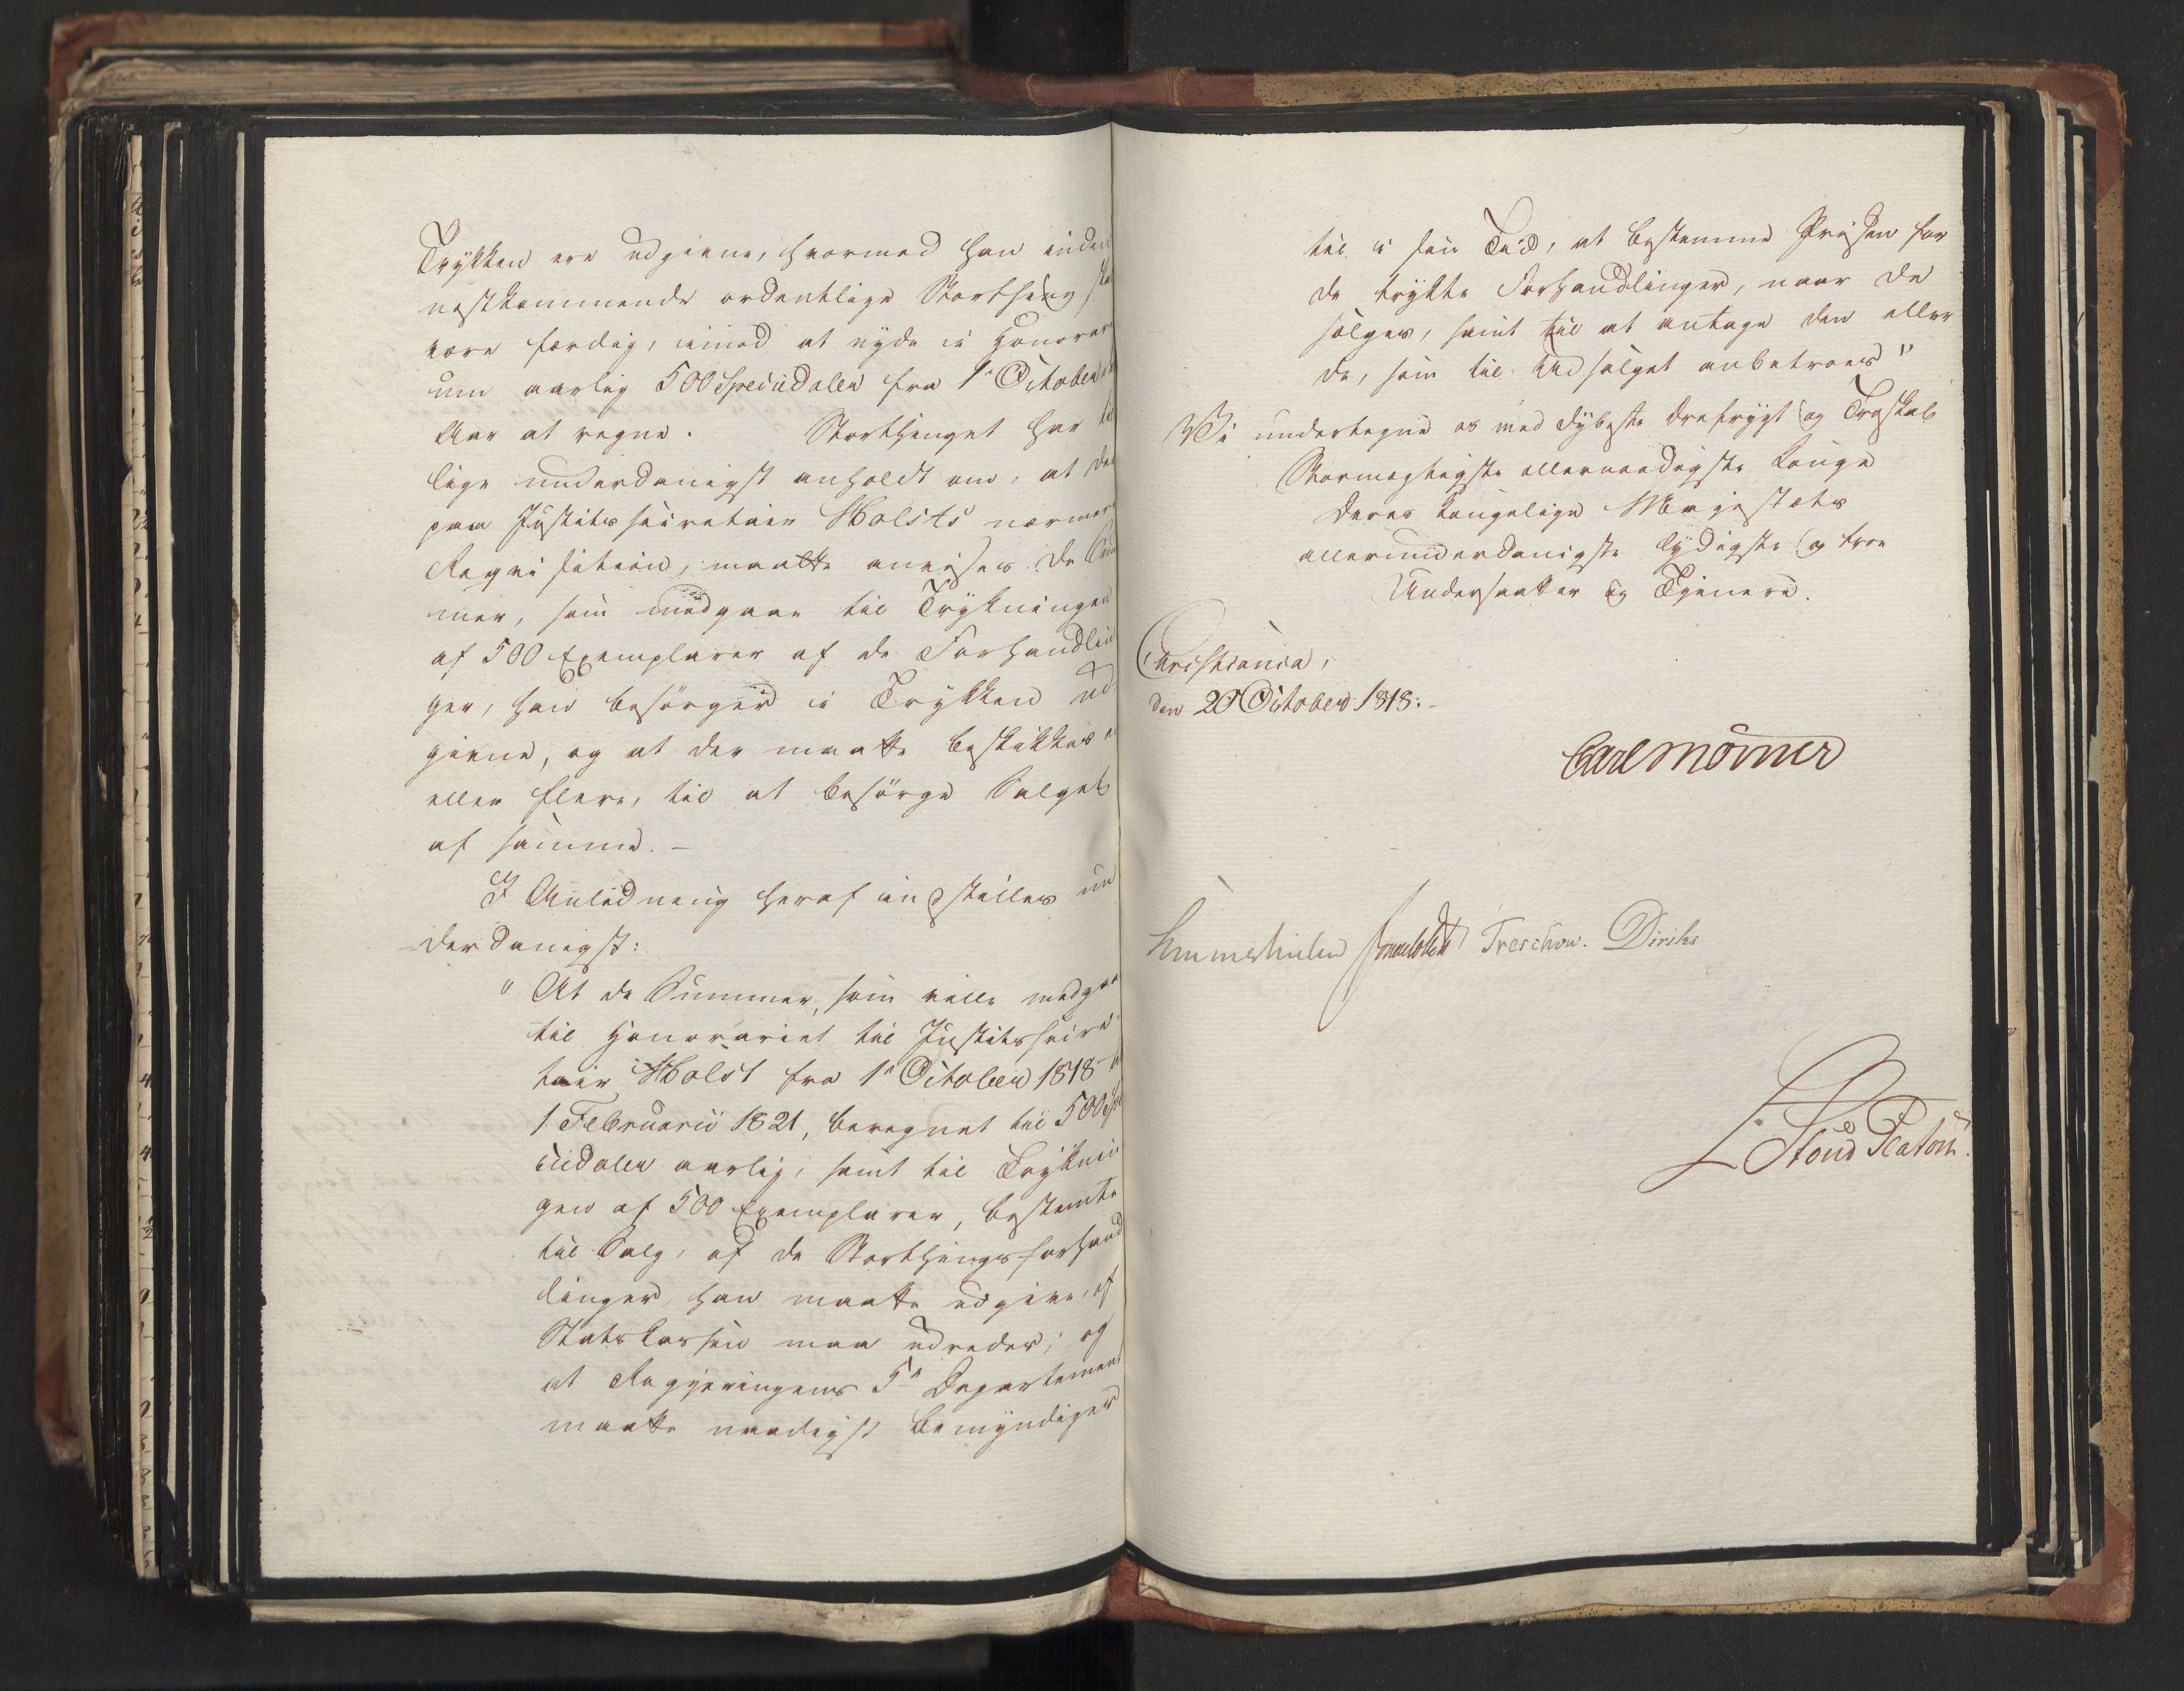 Trykken ere udgivne, hvormed han inden
nestkommende ordentlige Storthing
være færdig, imod at nyde i Honorar
um aarlig 500 Speciedaler fra 1e October
Aar at regne. Storthinget har
lige underdanigst anholdt om, at der
paa Justitssecretair Holsts nærmere
Reqvisition, maatte anvises de Sum
mer, som medgaae til Trykningen
af 500 Exemplarer af de Forhandlin
ger, han besörger i Trykken ud
givne, og at der maatte beskikkes
eller flere, til at besörge Salget
af samme. –
I Anledning heraf indstilles un
-derdanigst:
" At de Summer, som ville medgaae
til Honorariet til Justitssecre
tair Holst fra 1e October 1818
1 Februarii 1821, beregnet til 500 Spe
ciedaler aarlig, samt til Tryknin
gen af 500 Exemplarer, bestemte
til Salg, af de Storthingsforhand
linger, han maatte udgive, af
Statskassen maa udredes; og
at Regjeringens 5e Departement
maatte naadigst bemyndiges
til i sin Tid, at bestemme Prisen for
de trykte Forhandlinger, naar de
sælges, samt til at antage den eller
de, som til Udsalget anbetroes"
Vi undertegne os med dybeste Ærefrygt og Troskab
Stormægtigste allernaadigste Konge
Deres Kongelige Majestæts
allerunderdanigste lydigste og troe
Undersaatter og Tjenere.
Christiania,
den 20 October 1818. –
Carl Mörner
Sommerhielm Treschow. Diriks
L Stoud Platou